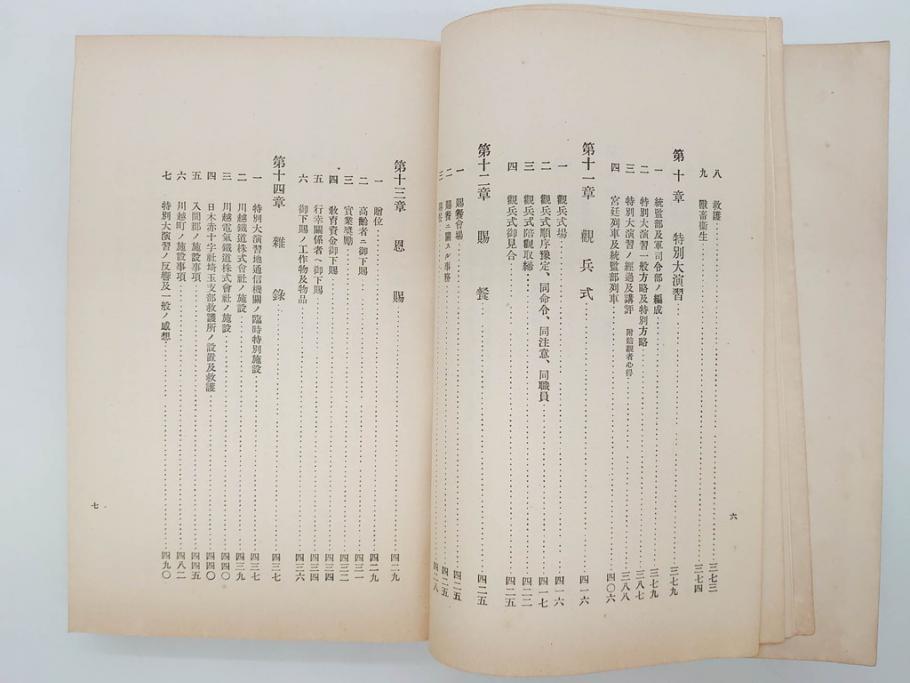 八　救護……三七三
九　獸畜衞生……三七四
第十章　特別大演習……三七九
一　統監部及軍司令部ノ編成……三七九
二　特別大演習一般方略及特別方略……三八七
三　特別大演習ノ經過及講評　附陪觀者心得……三八八
四　宮廷列車及統監部列車……四〇六
第十一章　觀兵式……四一六
一　觀兵式場……四一六
二　觀兵式順序豫定、同命令、同注意、同職員……四一七
三　觀兵式陪觀取締……四二二
四　觀兵式御見合……四二五
第十二章　賜餐……四二五
一　賜餐會場……四二五
二　賜餐ニ關スル事務……四二五
三……四二八
六
第十三章　恩賜……四二九
一　贈位……四二九
二　高齡者ニ御下賜……四三一
三　實業獎勵……四三二
四　敎育資金御下賜……四三四
五　行幸關係者ヘ御下賜……四三四
六　御下賜ノ工作物及物品……四三六
第十四章　雜錄……四三七
一　特別大演習地通信機關ノ臨時特別施設……四三七
二　川越鐵道株式會社ノ施設……四三九
三　川越電氣鐵道株式會社ノ施設……四四〇
四　日本赤十字社埼玉支部救護所ノ設置及救護……四四〇
五　入間郡ノ施設事項……四四五
六　川越町ノ施設事項……四八二
七　特別大演習ノ反響及一般ノ感想……四九〇
七